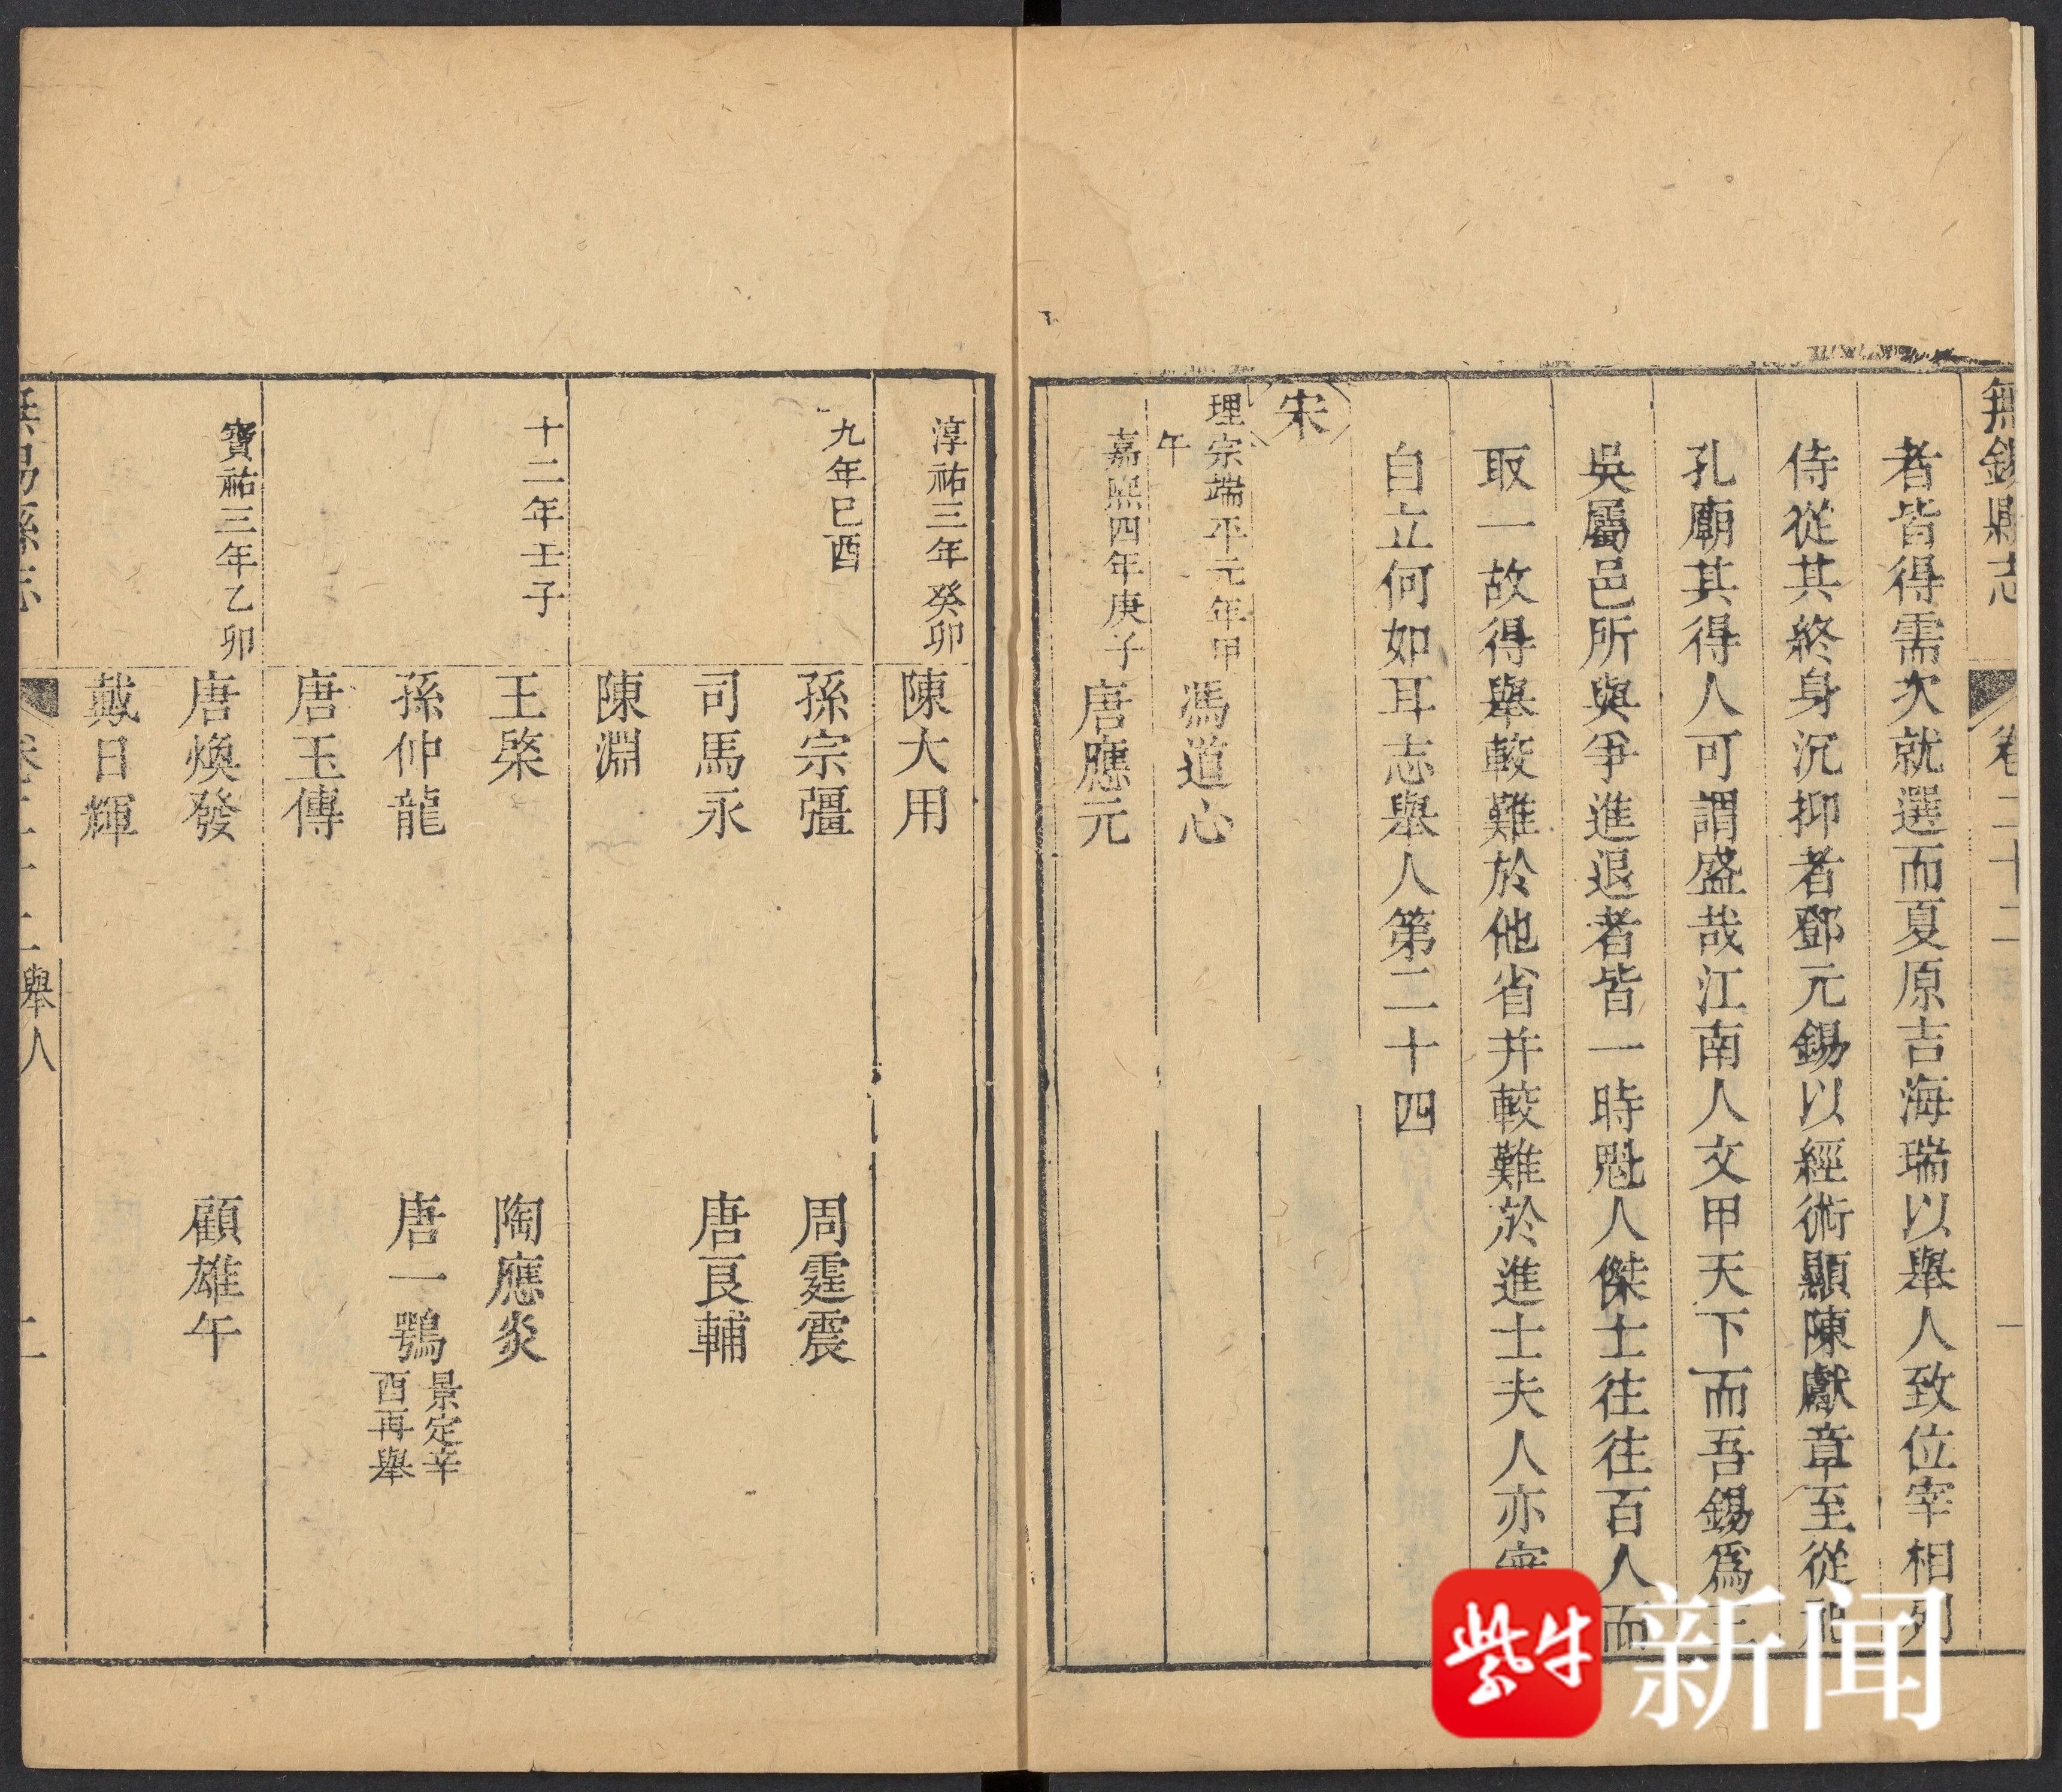 無錫縣志
卷二十二
一
者皆得需次就選而夏原吉海瑞以舉人致位宰相列
侍從其終身沉抑者鄧元錫以經術顯陳獻章至從祀
孔廟其得人可謂盛哉江南人文甲天下而吾錫爲
吳屬邑所與爭進退者皆一時魁人傑士往往百人而
取一故得舉較難於他省并較難於進士夫人亦
自立何如耳志舉人第二十四
宋
理宗端平元年甲
午
馮道心
嘉熙四年庚子
唐應元
淳祐三年癸卯
陳大用
九年巳酉
孫宗彊
周霆震
司馬永
唐良輔
陳淵
十二年壬子
王棨
陶應炎
孫仲龍
唐一鶚
景定辛
酉再舉
唐玉傳
寶祐三年乙卯
唐煥發
顧雄午
戴日輝
無錫縣志
卷二十二
舉人
二
紫牛新闻